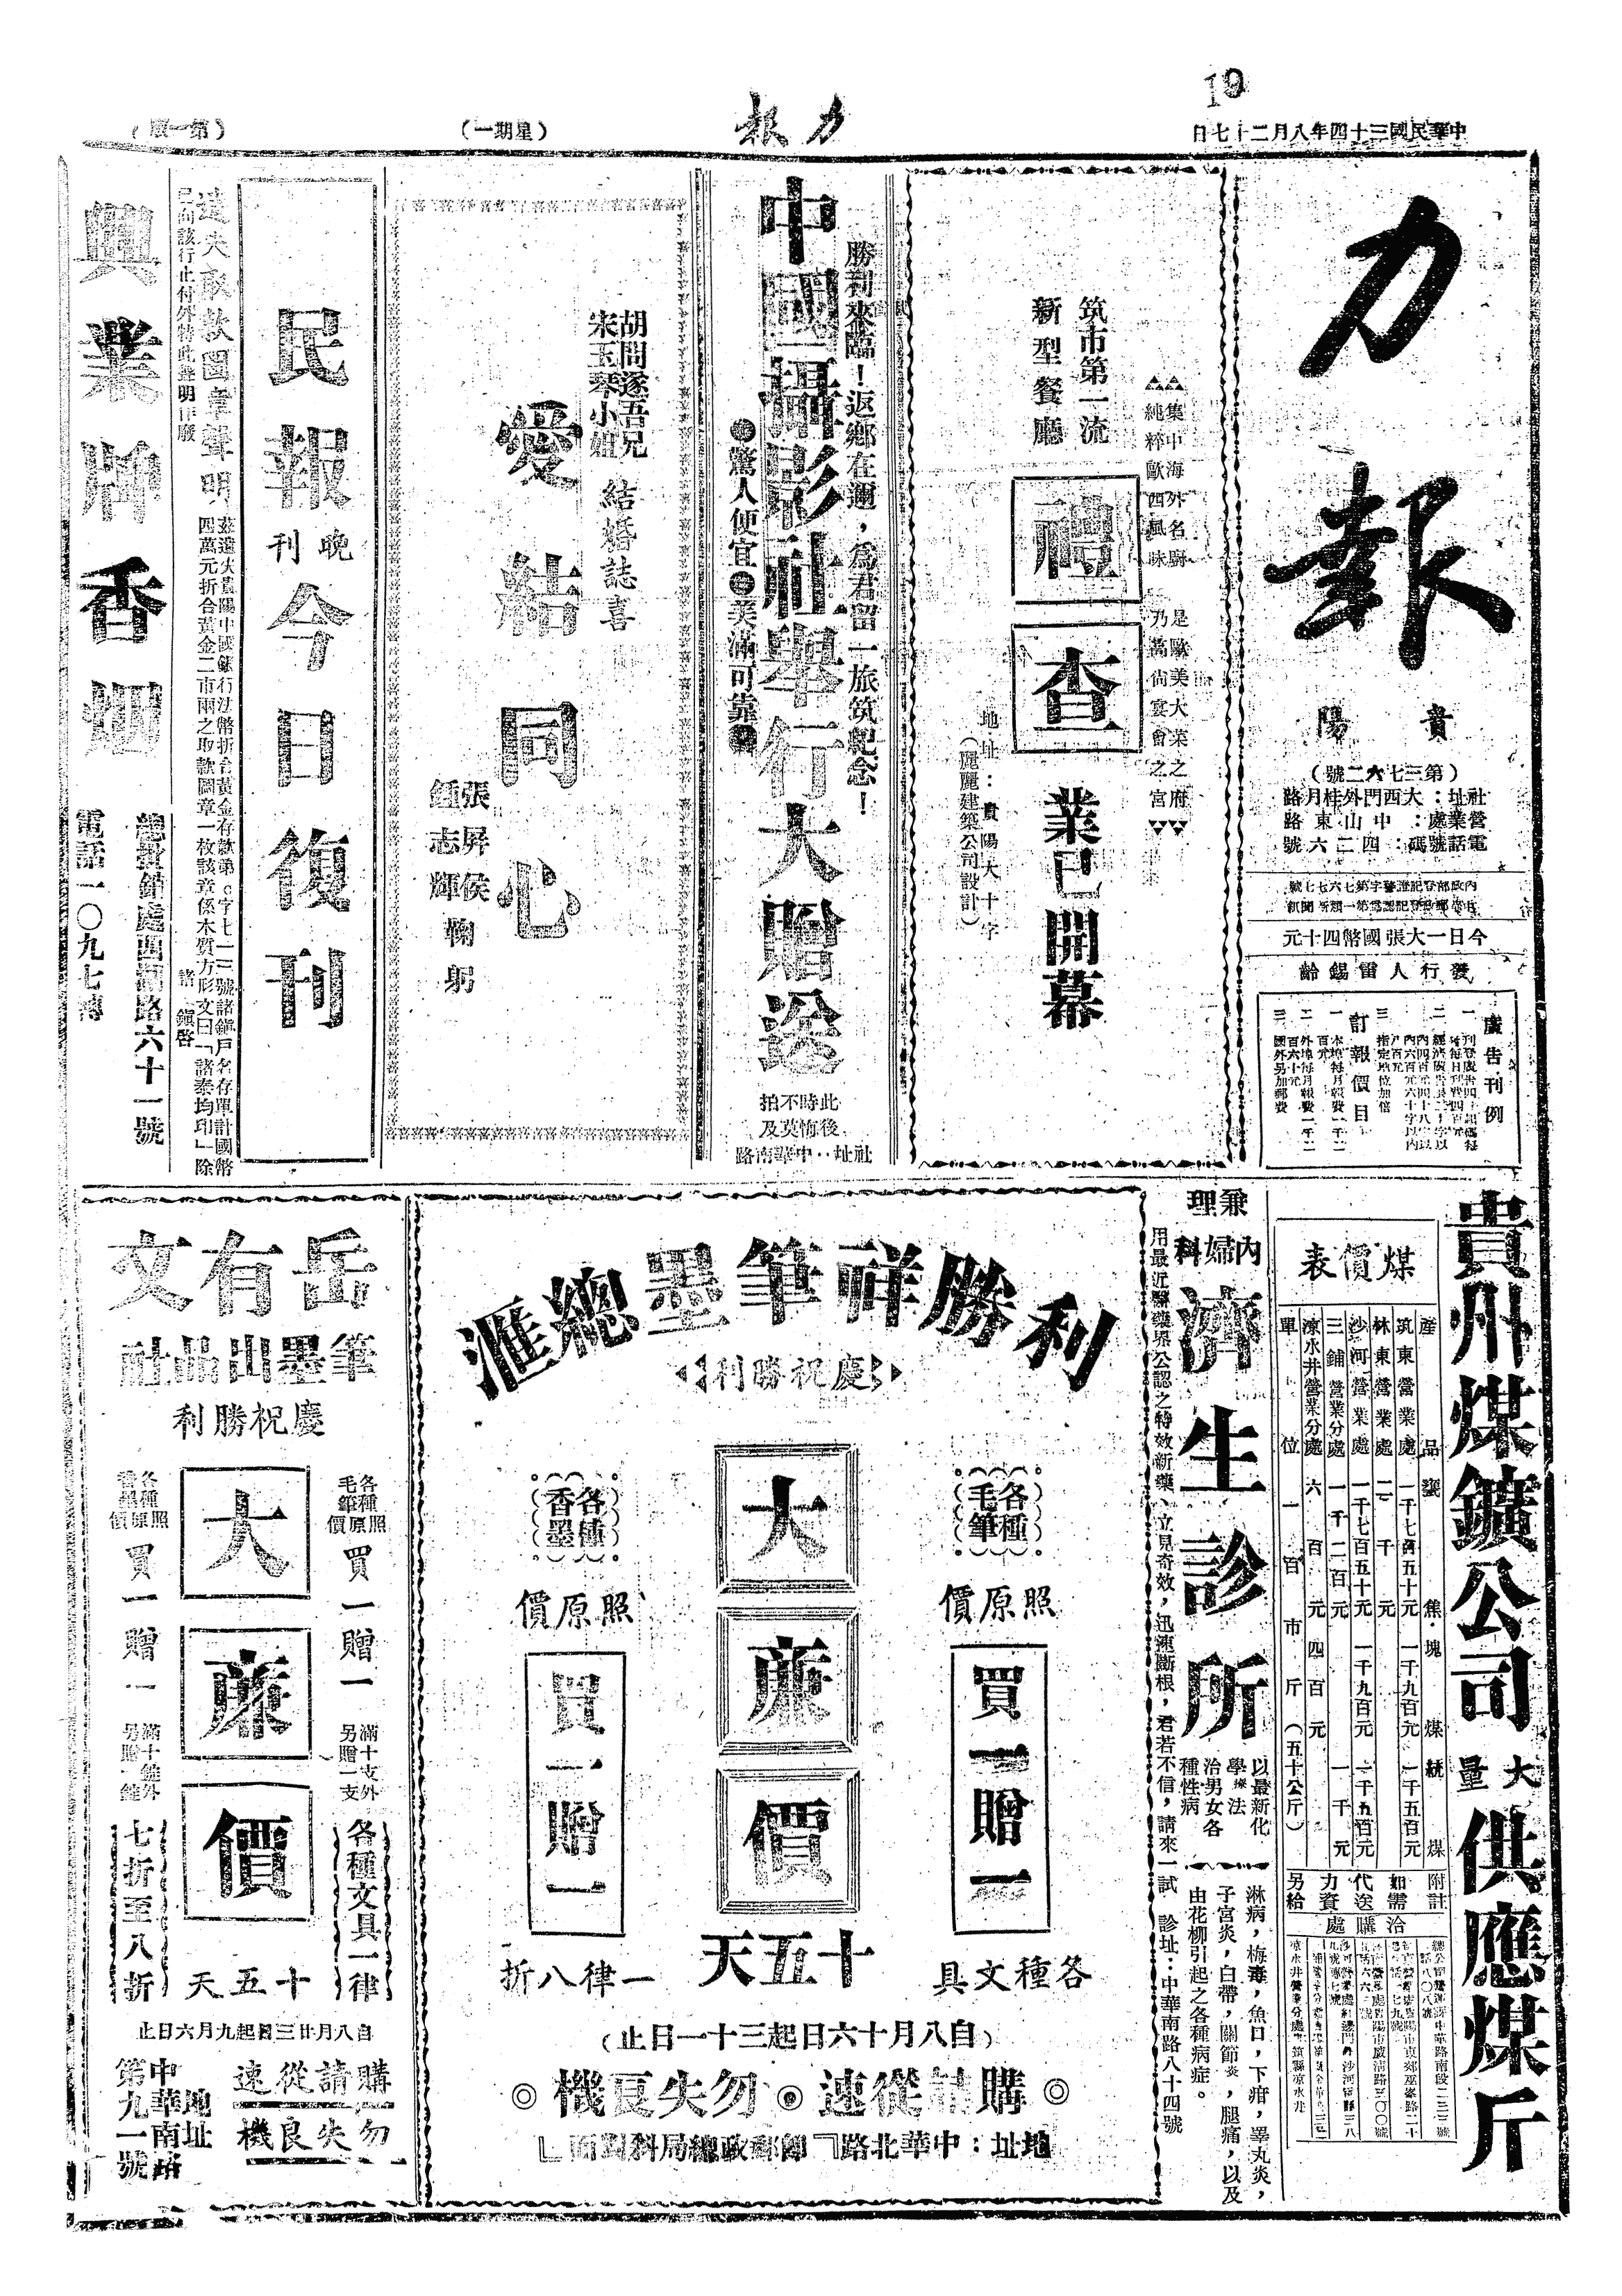 19
中華民國三十四年八月二十七日
力報
（星期一）
（第一版）
力報
貴陽
（第三七六二號）
社址：大西門外桂月路
營業處：中山東路
電話號碼：四二六號
今日一大張國幣四十元
發行人雷錫齡
廣告刊例
三 指定地位加倍
訂報價目
三 國外另加郵費
▲▲集中海外名廚 是歐美大菜之府▼▼
純粹歐西風味 乃高尚宴會之宮
筑市第一流
新型餐廳
禮查
業已開幕
地址：貴陽大十字
（麗麗建築公司設計）
勝利來臨！返鄉在邇，為君留一旅筑紀念！
中國攝影社舉行大贈送
驚人便宜 美滿可靠
此時不拍
後悔莫及
社址：中華南路
胡問遂吾兄
宋玉琴小姐
結婚誌喜
愛結同心
張屏侯
鍾志輝
鞠躬
民報晚刊今日復刊
遺失取款圖章聲明
茲遺失貴陽中國銀行法幣折合黃金存款第
號諸鎮戶名存單計國幣
四萬元折合黃金二市兩之取款圖章一枚該章係木質方形文曰「諸泰均印」除
已向該行止付外特此聲明作廢
諸鎮啓
興業牌香烟
總批銷處西湖路六十一號
電話一〇九七轉
貴州煤鑛公司大量供應煤斤
煤價表
產品 焦 塊煤 統煤
筑東營業處 一千七百五十元 一千九百元 一千五百元
林東營業處 二千元
沙河營業處 一千七百五十元 一千九百元 一千五百元
三鋪營業分處 一千二百元 一千元
涼水井營業分處 六百元 四百元
單位 一百市斤（五十公斤）
附註
如需代送力資另給
洽購處
兼理內婦科
濟生診所
以最新化學療法治男女各種性病
淋病，梅毒，魚口，下疳，睾丸炎，
子宮炎，白帶，關節炎，腿痛，以及
由花柳引起之各種病症。
用最近醫藥界公認之特效新藥，立見奇效，迅速斷根，君若不信，請來一試
診址：中華南路八十四號
利勝祥筆墨總滙
慶祝勝利
大廉價
十五天
各種毛筆
照原價
買一贈一
各種文具
各種香墨
照原價
買一贈一
一律八折
（自八月十六日起三十一日止）
◎購請從速◎勿失良機◎
地址：中華北路「即郵政總局斜對面」
岳有文
筆墨出品社
慶祝勝利
大廉價
十五天
各種毛筆照原價
買一贈一
滿十支外另贈一支
各種文具一律
各種香墨照原價
買一贈一
滿十錠外另贈一錠
七折至八折
自八月廿三日起九月六日止
購請從速
勿失良機
地址
中華南路
第九一號